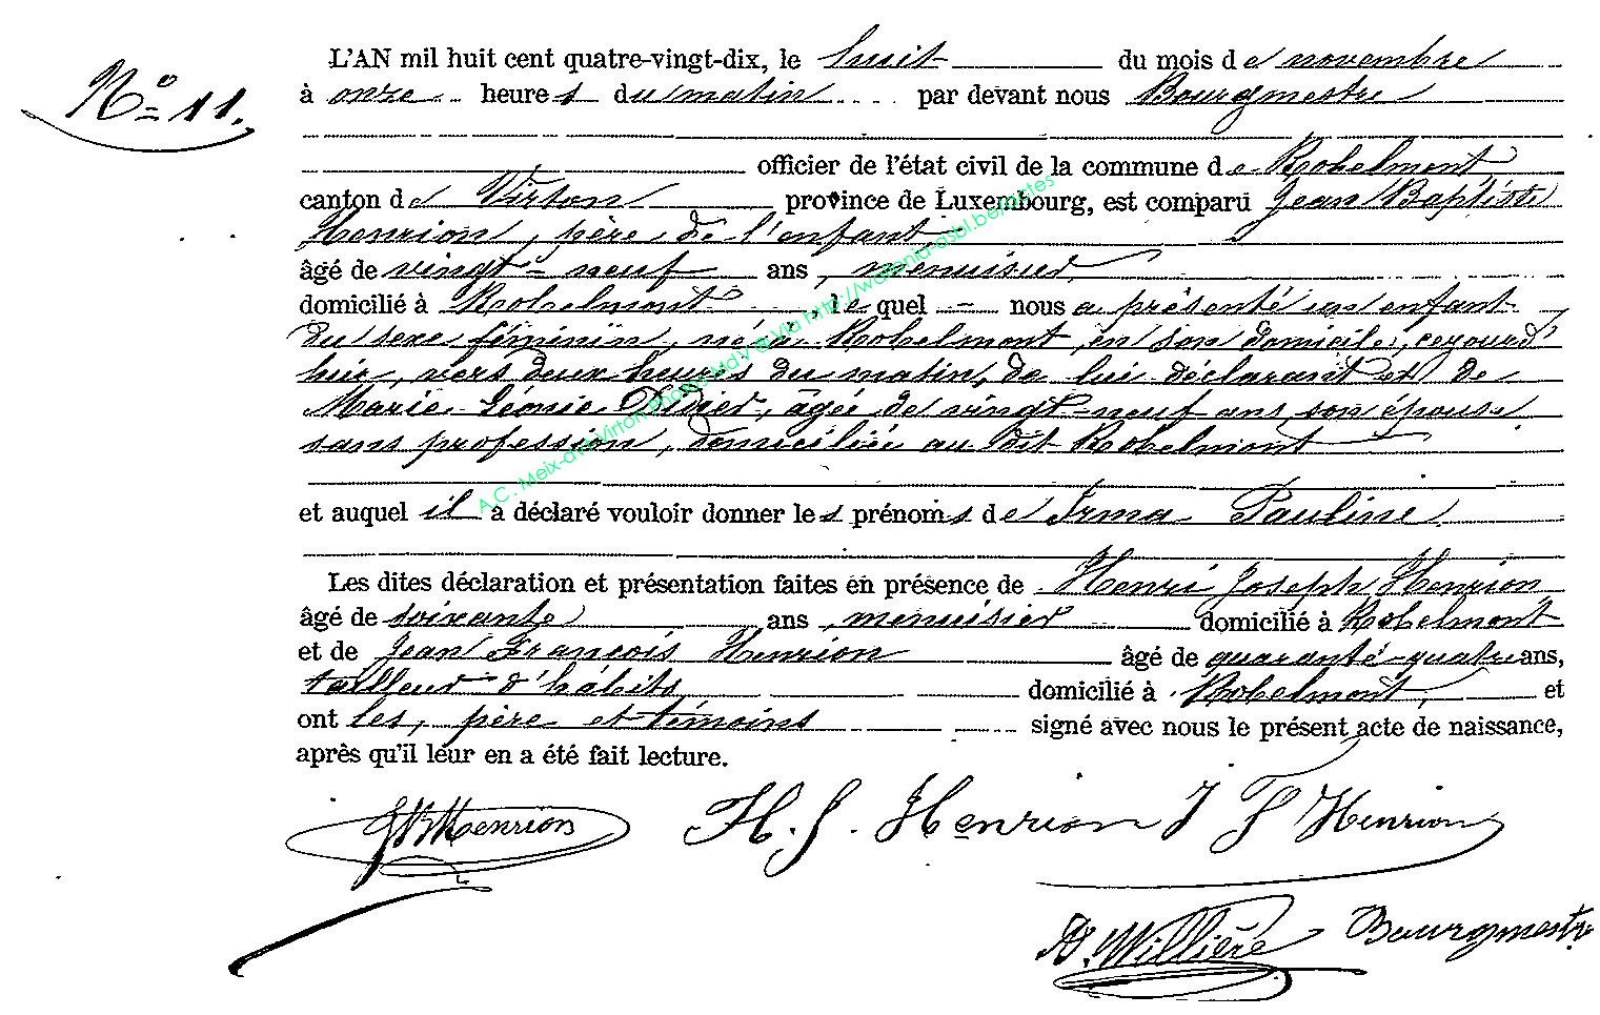 L'AN mil huit cent quatre-vingt-dix, le huit du mois de novembre
N° 11.
à onze heures du matin par devant nous Bourgmestre
officier de l'état civil de la commune de Robelmont
canton de Virton province de Luxembourg, est comparu Jean Baptiste
Henrion, père de l'enfant
âgé de vingt-neuf ans, menuisier
domicilié à Robelmont, le quel nous a présenté un enfant
du sexe féminin, né à Robelmont, en son domicile, cejourd'
hui, vers deux heures du matin, de lui déclarant et de
Marie Léonie Didier, âgée de vingt-neuf ans son épouse
sans profession, domiciliée au dit Robelmont
et auquel il a déclaré vouloir donner les prénoms de Irma Pauline
Les dites déclaration et présentation faites en présence de Henri Joseph Henrion
âgé de soixante ans, menuisier domicilié à Robelmont
et de Jean François Henrion âgé de quarante-quatre ans,
tailleur d'habits domicilié à Robelmont, et
ont les, père et témoins signé avec nous le présent acte de naissance,
après qu'il leur en a été fait lecture.
JBHenrion H. J. Henrion J F Henrion
Millière Bourgmestre
A.C. Meix-dvt-Virton Photos MdV @ Via http://wallonia-asbl.be/textes